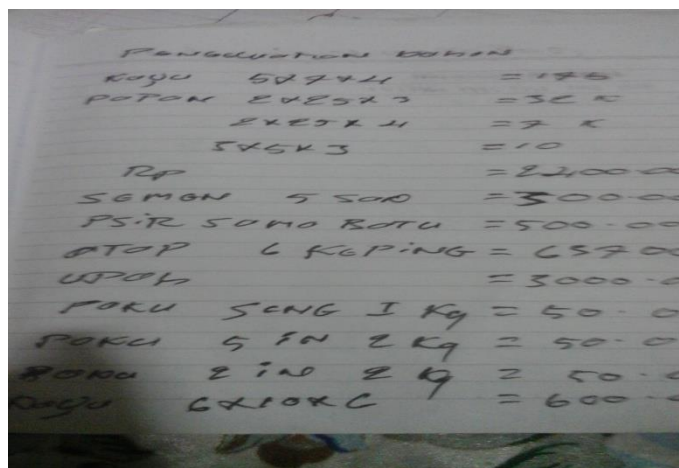 PENGELUATAN BAHAN
KAYU 5x7x4 = 175
PAPAN 2x25x3 = 32 K
2x25x4 = 7 K
5x5x3 = 10
Rp = 2200.00
SEMEN 5 SAO = 300.00
PSIR SAMO BATU = 500.00
ATAP 6 KEPING = 65700
UPAH = 3000.0
PAKU SENG I Kg = 50.0
PAKU 5 iN 2 Kg = 50.0
2 iN 2 Kg = 50.0
KAYU 6x10x6 = 600.0